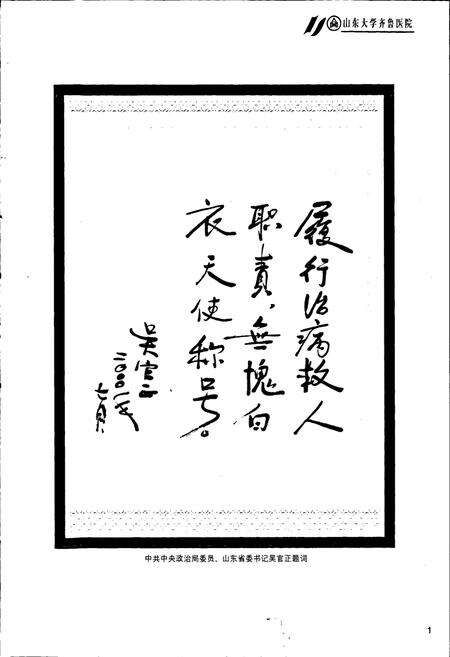 山东大学齐鲁医院
履行治病救人
职責，無愧白
衣天使称号。
吴官正
二〇〇一年
七月
中共中央政治局委员、山东省委书记吴官正题词
1